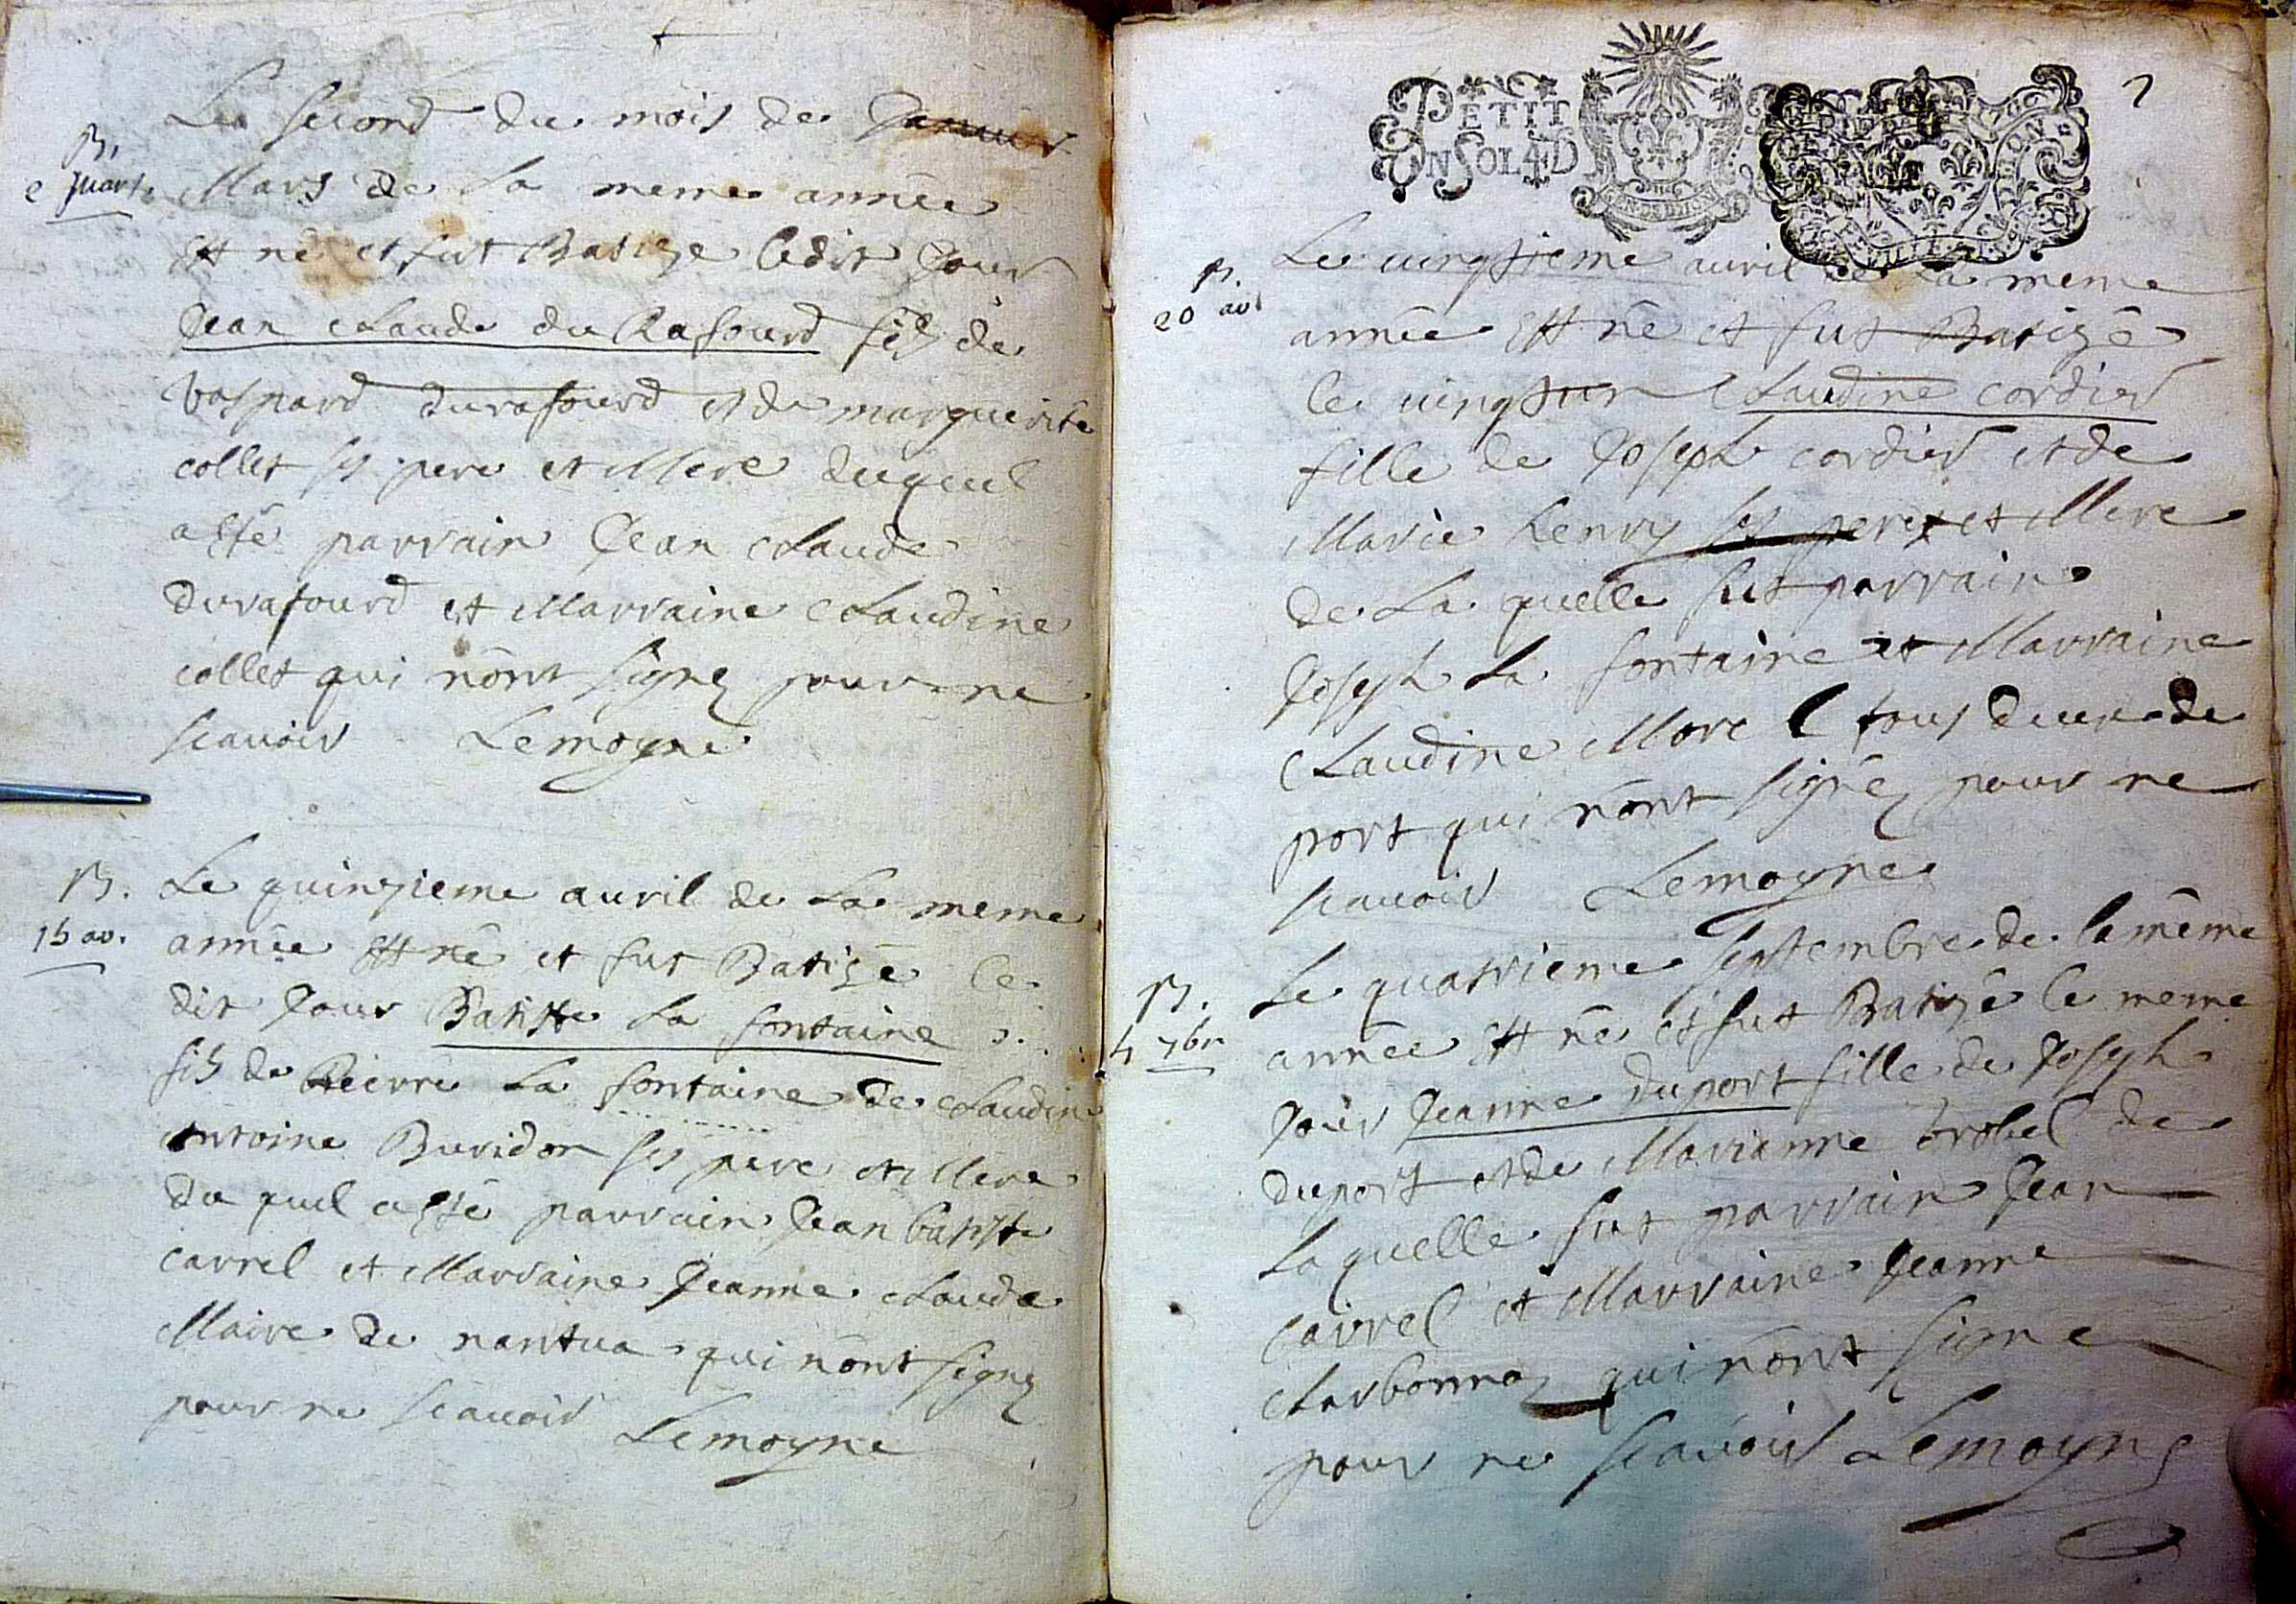 Le second du mois de Janvier
B.
2 mars
Mars de la meme année
est né et fut Batizé ledit Jour
Jean Claude du Rafourd fils de
Gaspard durafourd et de marguerite
collet ses pere et Mere duquel
a esté parrain Jean Claude
durafourd et Marraine Claudine
collet qui nont signez pour ne
scavoir Lemoyne
B.
15 av.
Le quinzieme avril de La meme
année est né et fut Batizé le
dit Jour Batiste La fontaine
fils de Pierre La fontaine de Claudine
Antoine Buridon ses pere et Mere
du quel a esté parrain Jean batiste
Carrel et Marraine Jeanne Claude
Maire de nantua qui nont signez
pour ne scavoir Lemoyne
PETIT
UN SOL 4 D
2
B.
20 av
Le vingtieme avril de La meme
année est né et fut Batizé
le vingt un Claudine cordier
fille de Joseph cordier et de
Marie henry ses pere et Mere
de La quelle fut parrain
Joseph La fontaine et Marraine
Claudine Morel tous deux de
port qui nont signéz pour ne
scavoir Lemoyne
B.
4 7br
Le quatrieme septembre de la méme
année est né et fut Batizé le meme
Jour Jeanne duport fille de Joseph
duport et de Marianne brobel de
Laquelle fut parrain Jean
Carrel et Marraine Jeanne
Charbonnaz qui nont signe
pour ne scavoir Lemoyne